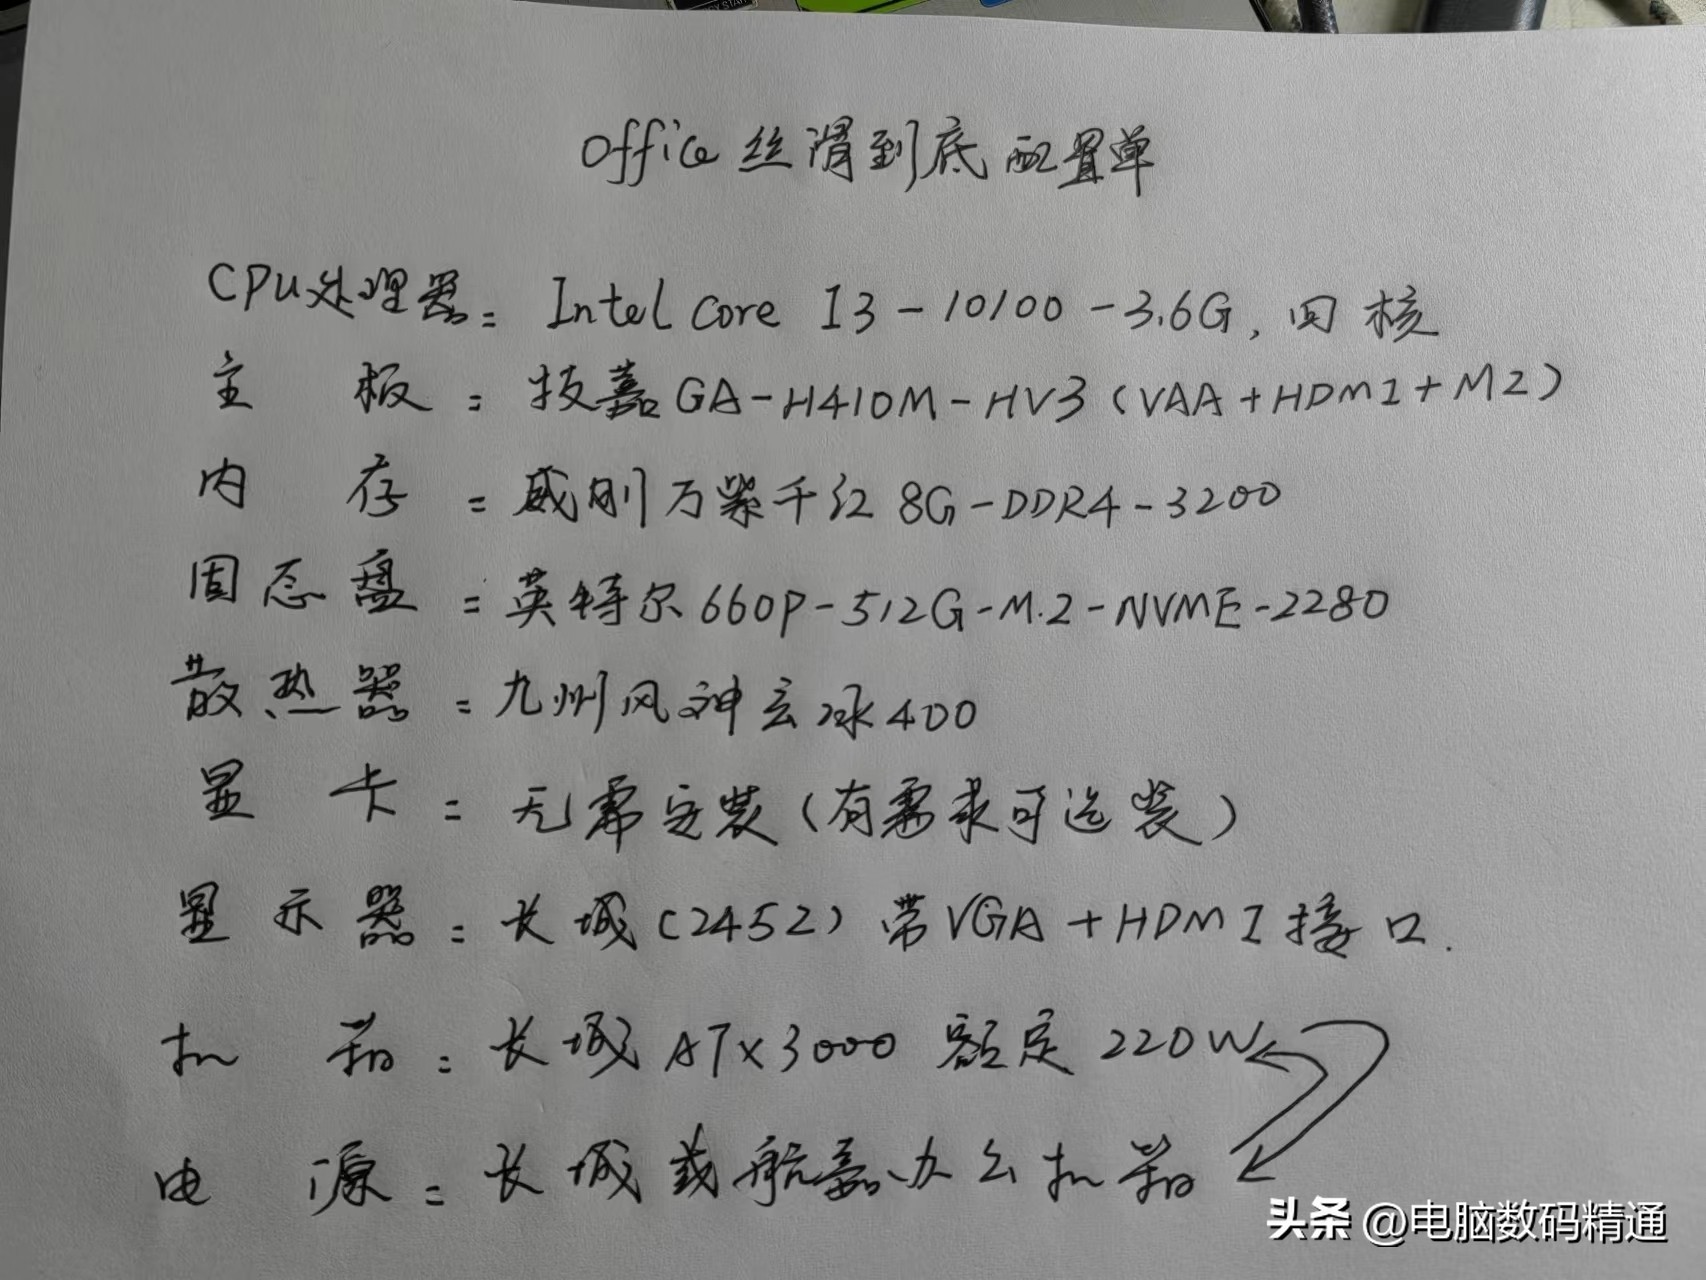 Office 丝滑到底配置单
CPU处理器: Intel Core I3-10100-3.6G, 四核
主板: 技嘉GA-H410M-HV3(VAA+HDMI+M2)
内存: 威刚万紫千红 8G-DDR4-3200
固态盘: 英特尔660P-512G-M.2-NVME-2280
散热器: 九州风神玄冰400
显卡: 无需安装(有需求可选装)
显示器: 长城(2452)带VGA+HDMI接口.
机箱: 长城ATX3000 额定220W
电源: 长城或航嘉办公机箱
头条 @电脑数码精通